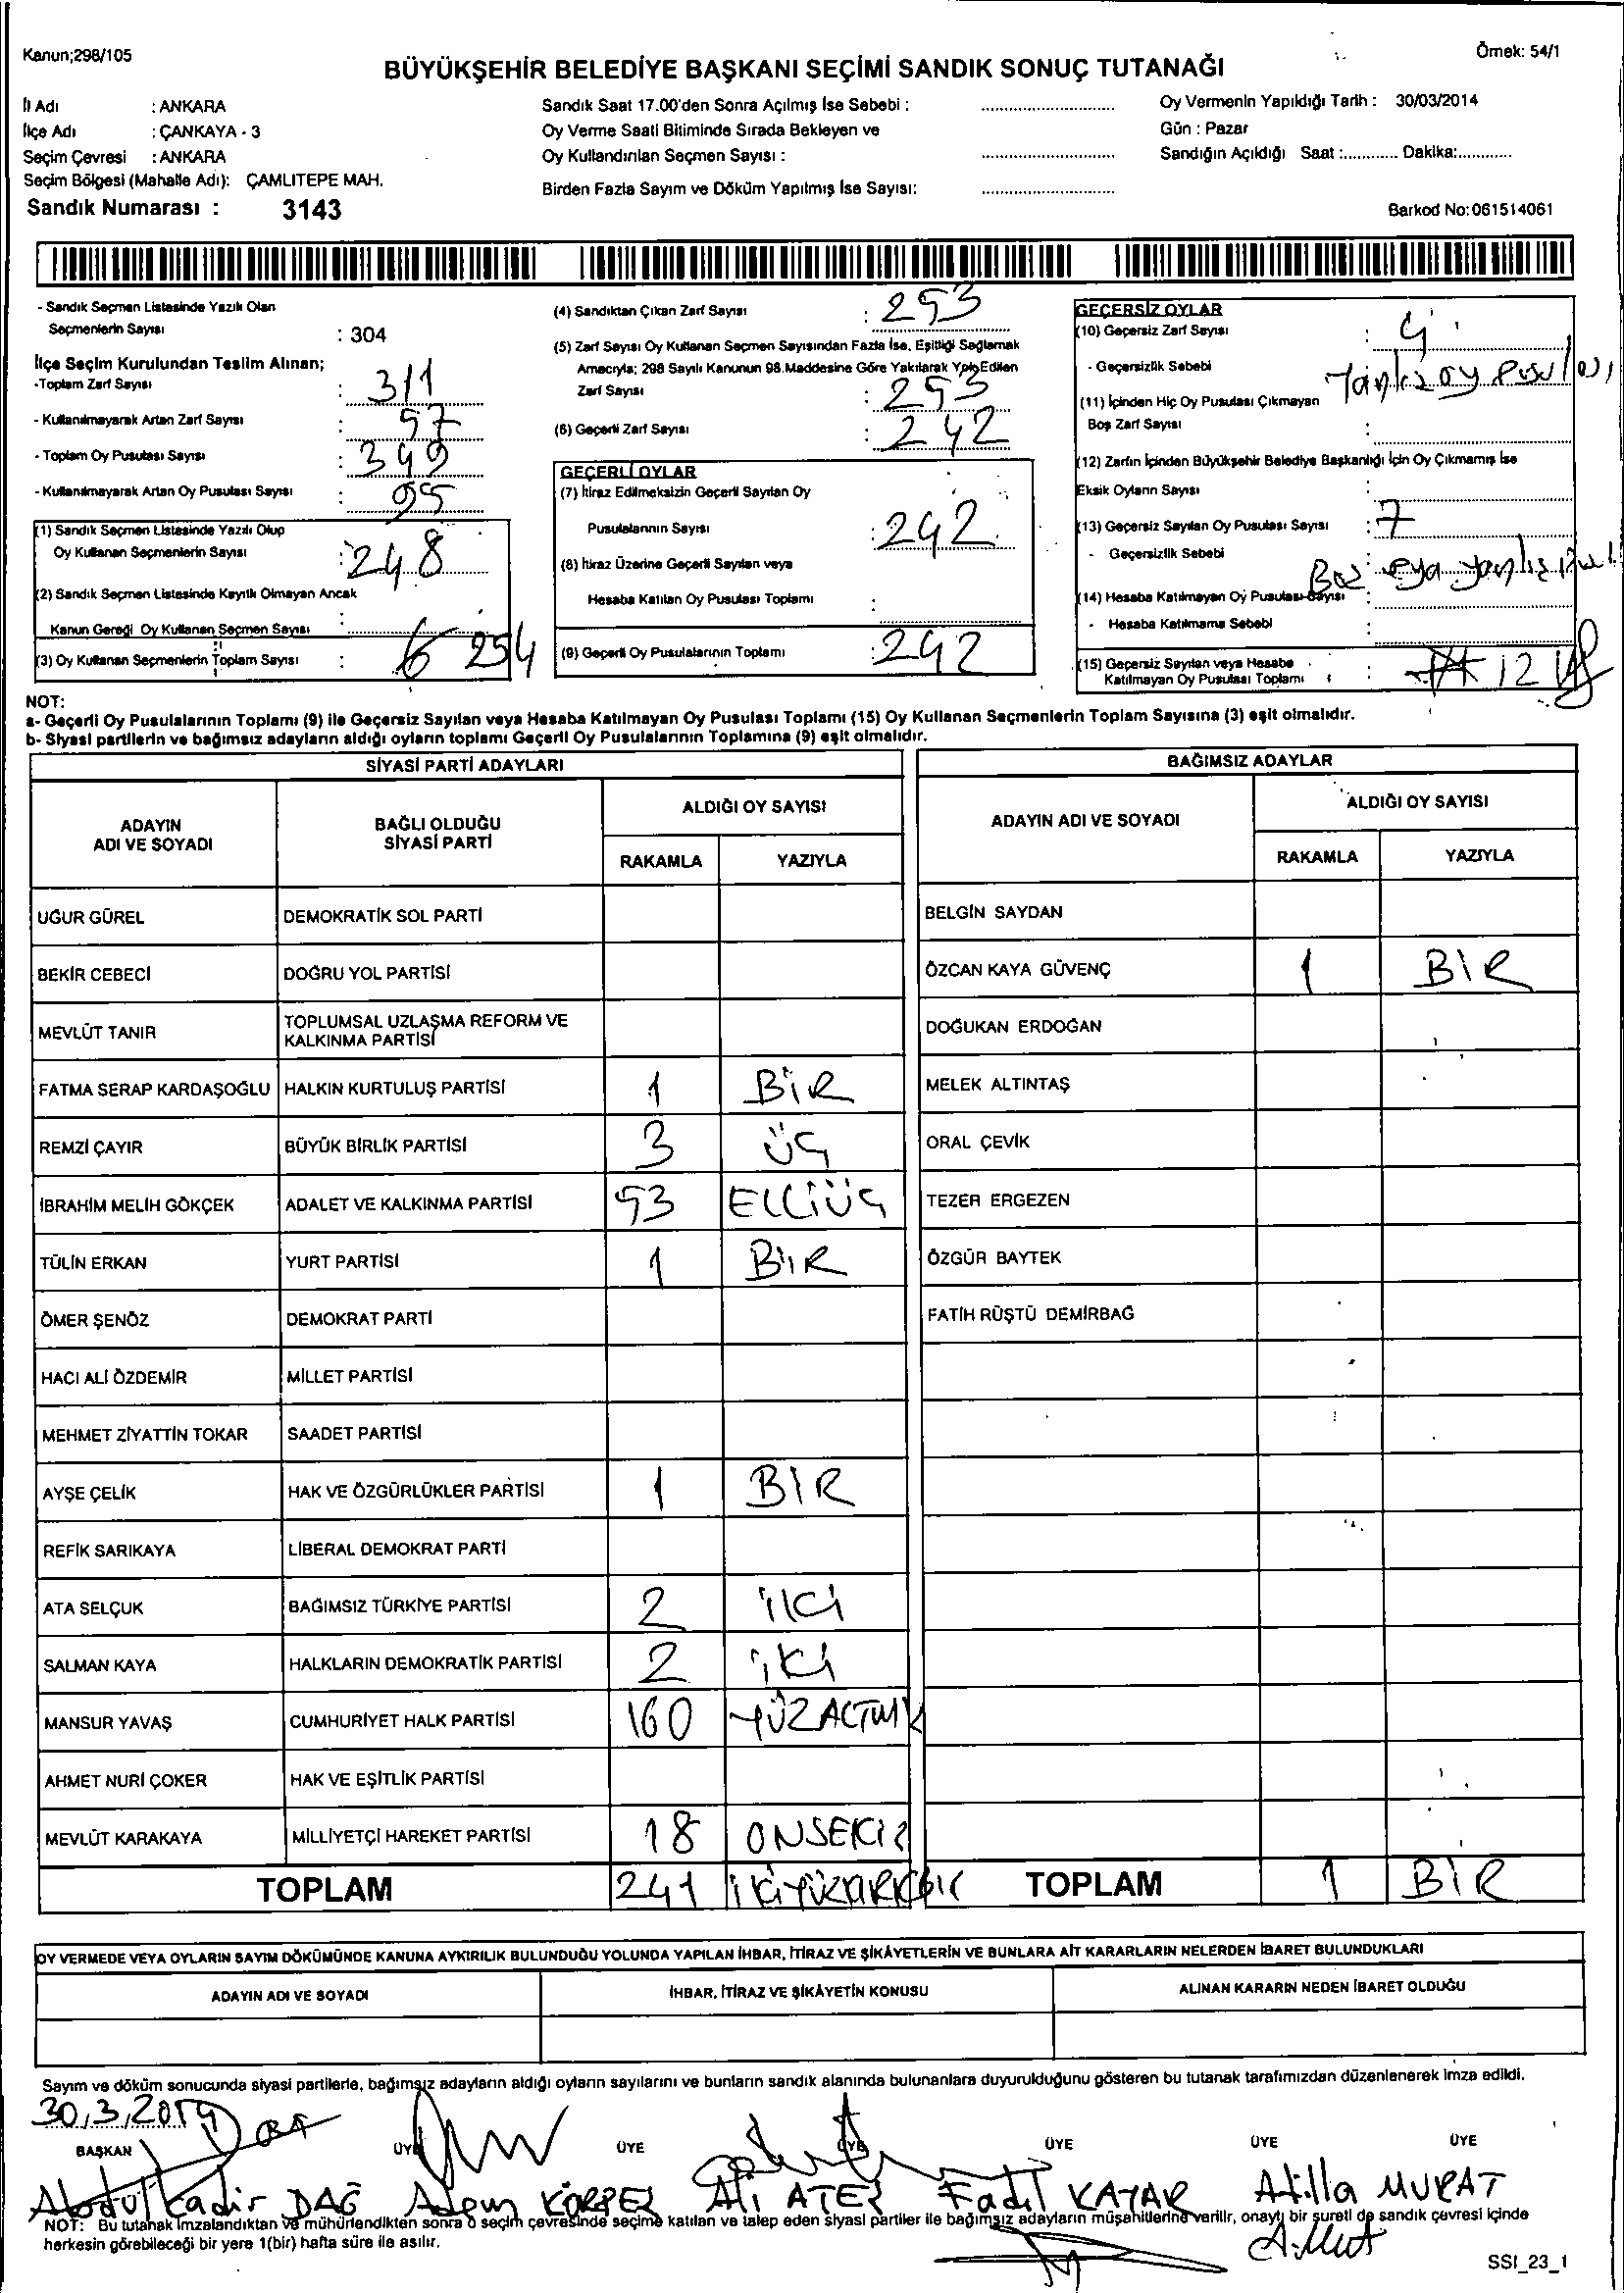 Kanun;298/105
Örnek: 54/1
BÜYÜKŞEHİR BELEDİYE BAŞKANI SEÇİMİ SANDIK SONUÇ TUTANAĞI
İl Adı : ANKARA
İlçe Adı : ÇANKAYA - 3
Seçim Çevresi : ANKARA
Seçim Bölgesi (Mahalle Adı): ÇAMLITEPE MAH.
Sandık Numarası : 3143
Sandık Saat 17.00'den Sonra Açılmış İse Sebebi :
Oy Verme Saati Bitiminde Sırada Bekleyen ve
Oy Kullandırılan Seçmen Sayısı :
Birden Fazla Sayım ve Döküm Yapılmış İse Sayısı:
Oy Vermenin Yapıldığı Tarih : 30/03/2014
Gün : Pazar
Sandığın Açıldığı Saat :............ Dakika:............
Barkod No:061514061
- Sandık Seçmen Listesinde Yazılı Olan
Seçmenlerin Sayısı : 304
İlçe Seçim Kurulundan Teslim Alınan;
-Toplam Zarf Sayısı : 311
- Kullanılmayarak Artan Zarf Sayısı : 57
- Toplam Oy Pusulası Sayısı : 349
- Kullanılmayarak Artan Oy Pusulası Sayısı : 95
(1) Sandık Seçmen Listesinde Yazılı Olup
Oy Kullanan Seçmenlerin Sayısı : 248
(2) Sandık Seçmen Listesinde Kayıtlı Olmayan Ancak
Kanun Gereği Oy Kullanan Seçmen Sayısı : 6
(3) Oy Kullanan Seçmenlerin Toplam Sayısı : 254
(4) Sandıktan Çıkan Zarf Sayısı : 253
(5) Zarf Sayısı Oy Kullanan Seçmen Sayısından Fazla İse, Eşitliği Sağlamak
Amacıyla; 298 Sayılı Kanunun 98.Maddesine Göre Yakılarak Yok Edilen
Zarf Sayısı : 253
(6) Geçerli Zarf Sayısı : 242
GEÇERLİ OYLAR
(7) İtiraz Edilmeksizin Geçerli Sayılan Oy
Pusulalarının Sayısı : 242
(8) İtiraz Üzerine Geçerli Sayılan veya
Hesaba Katılan Oy Pusulası Toplamı :
(9) Geçerli Oy Pusulalarının Toplamı : 242
GEÇERSİZ OYLAR
(10) Geçersiz Zarf Sayısı : 4
- Geçersizlik Sebebi : Yanlız oy Pusulası
(11) İçinden Hiç Oy Pusulası Çıkmayan
Boş Zarf Sayısı :
(12) Zarfın İçinden Büyükşehir Belediye Başkanlığı İçin Oy Çıkmamış İse
Eksik Oyların Sayısı :
(13) Geçersiz Sayılan Oy Pusulası Sayısı : 7
- Geçersizlik Sebebi : Boş veya yanlış
(14) Hesaba Katılmayan Oy Pusulası Sayısı :
- Hesaba Katılmama Sebebi :
(15) Geçersiz Sayılan veya Hesaba
Katılmayan Oy Pusulası Toplamı : 12
NOT:
a- Geçerli Oy Pusulalarının Toplamı (9) ile Geçersiz Sayılan veya Hesaba Katılmayan Oy Pusulası Toplamı (15) Oy Kullanan Seçmenlerin Toplam Sayısına (3) eşit olmalıdır.
b- Siyasi partilerin ve bağımsız adayların aldığı oyların toplamı Geçerli Oy Pusulalarının Toplamına (9) eşit olmalıdır.
SİYASİ PARTİ ADAYLARI
ADAYIN ADI VE SOYADI BAĞLI OLDUĞU SİYASİ PARTİ ALDIĞI OY SAYISI
RAKAMLA YAZIYLA
UĞUR GÜREL DEMOKRATİK SOL PARTİ
BEKİR CEBECİ DOĞRU YOL PARTİSİ
MEVLÜT TANIR TOPLUMSAL UZLAŞMA REFORM VE KALKINMA PARTİSİ
FATMA SERAP KARDAŞOĞLU HALKIN KURTULUŞ PARTİSİ 1 BİR
REMZİ ÇAYIR BÜYÜK BİRLİK PARTİSİ 3 ÜÇ
İBRAHİM MELİH GÖKÇEK ADALET VE KALKINMA PARTİSİ 53 ELLİÜÇ
TÜLİN ERKAN YURT PARTİSİ 1 BİR
ÖMER ŞENÖZ DEMOKRAT PARTİ
HACI ALİ ÖZDEMİR MİLLET PARTİSİ
MEHMET ZİYATTİN TOKAR SAADET PARTİSİ
AYŞE ÇELİK HAK VE ÖZGÜRLÜKLER PARTİSİ 1 BİR
REFİK SARIKAYA LİBERAL DEMOKRAT PARTİ
ATA SELÇUK BAĞIMSIZ TÜRKİYE PARTİSİ 2 İKİ
SALMAN KAYA HALKLARIN DEMOKRATİK PARTİSİ 2 İKİ
MANSUR YAVAŞ CUMHURİYET HALK PARTİSİ 160 YÜZALTMIŞ
AHMET NURİ ÇOKER HAK VE EŞİTLİK PARTİSİ
MEVLÜT KARAKAYA MİLLİYETÇİ HAREKET PARTİSİ 18 ONSEKİZ
TOPLAM 241 İKİYÜZKIRKBİR
BAĞIMSIZ ADAYLAR
ADAYIN ADI VE SOYADI ALDIĞI OY SAYISI
RAKAMLA YAZIYLA
BELGİN SAYDAN
ÖZCAN KAYA GÜVENÇ 1 BİR
DOĞUKAN ERDOĞAN
MELEK ALTINTAŞ
ORAL ÇEVİK
TEZER ERGEZEN
ÖZGÜR BAYTEK
FATİH RÜŞTÜ DEMİRBAĞ
TOPLAM 1 BİR
OY VERMEDE VEYA OYLARIN SAYIM DÖKÜMÜNDE KANUNA AYKIRILIK BULUNDUĞU YOLUNDA YAPILAN İHBAR, İTİRAZ VE ŞİKÂYETLERİN VE BUNLARA AİT KARARLARIN NELERDEN İBARET BULUNDUKLARI
ADAYIN ADI VE SOYADI İHBAR, İTİRAZ VE ŞİKÂYETİN KONUSU ALINAN KARARIN NEDEN İBARET OLDUĞU
Sayım ve döküm sonucunda siyasi partilerle, bağımsız adayların aldığı oyların sayılarını ve bunların sandık alanında bulunanlara duyurulduğunu gösteren bu tutanak tarafımızdan düzenlenerek imza edildi.
30.3.2014
BAŞKAN ÜYE ÜYE ÜYE ÜYE ÜYE ÜYE
Abdulkadir DAĞ Adem KÖRPEZ Ali ATEŞ Fadıl KAYAR Atilla MURAT
NOT: Bu tutanak imzalandıktan ve mühürlendikten sonra o seçim çevresinde seçime katılan ve talep eden siyasi partiler ile bağımsız adayların müşahitlerine verilir, onaylı bir sureti de sandık çevresi içinde
herkesin görebileceği bir yere 1(bir) hafta süre ile asılır.
SSI_23_1